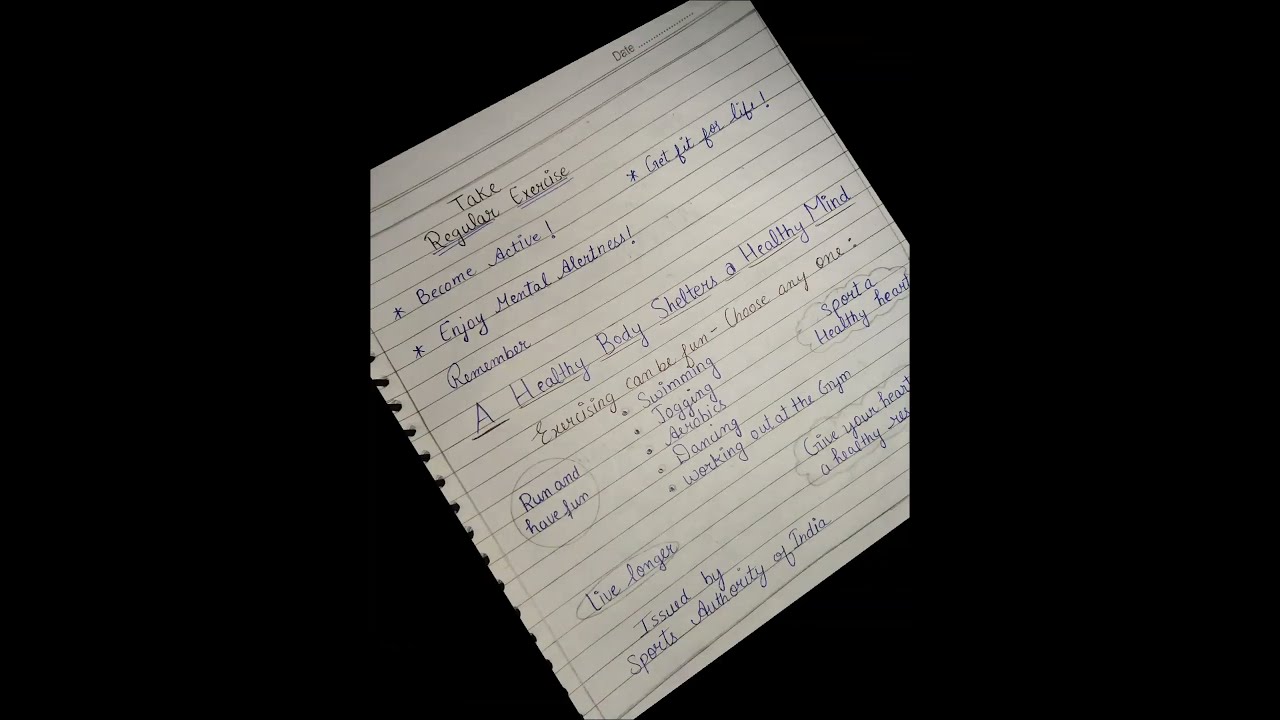 Date
Take
Regular Exercise
* Become Active!
* Get fit for life!
* Enjoy Mental Alertness!
Remember
A Healthy Body Shelters a Healthy Mind
Exercising can be fun - Choose any one:
• Swimming
• Jogging
• Aerobics
• Dancing
• Working out at the Gym
Sport a
Healthy heart
Run and
have fun
Give your heart
a healthy
Live longer
Issued by
Sports Authority of India